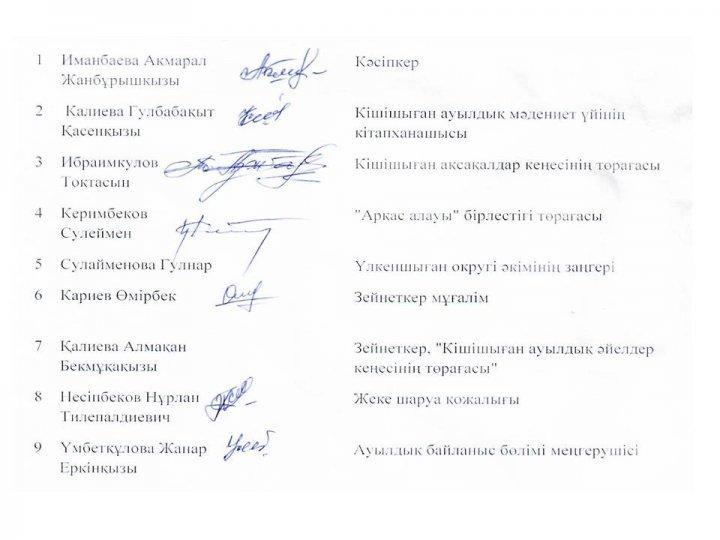 1 Иманбаева Акмарал Кәсіпкер
Жанбұрышқызы
2 Қалиева Гулбабақыт Кішішыған ауылдық мәдениет үйінің
Қасенқызы кітапханашысы
3 Ибраимкулов Кішішыған ақсақалдар кеңесінің төрағасы
Тоқтасын
4 Керимбеков "Арқас алауы" бірлестігі төрағасы
Сулеймен
5 Сулайменова Гулнар Үлкеншыған округі әкімінің заңгері
6 Кариев Өмірбек Зейнеткер мұғалім
7 Қалиева Алмақан Зейнеткер, "Кішішыған ауылдық әйелдер
Бекмұқақызы кеңесінің төрағасы"
8 Несіпбеков Нұрлан Жеке шаруа қожалығы
Тилепалдиевич
9 Үмбетқұлова Жанар Ауылдық байланыс бөлімі меңгерушісі
Еркінқызы